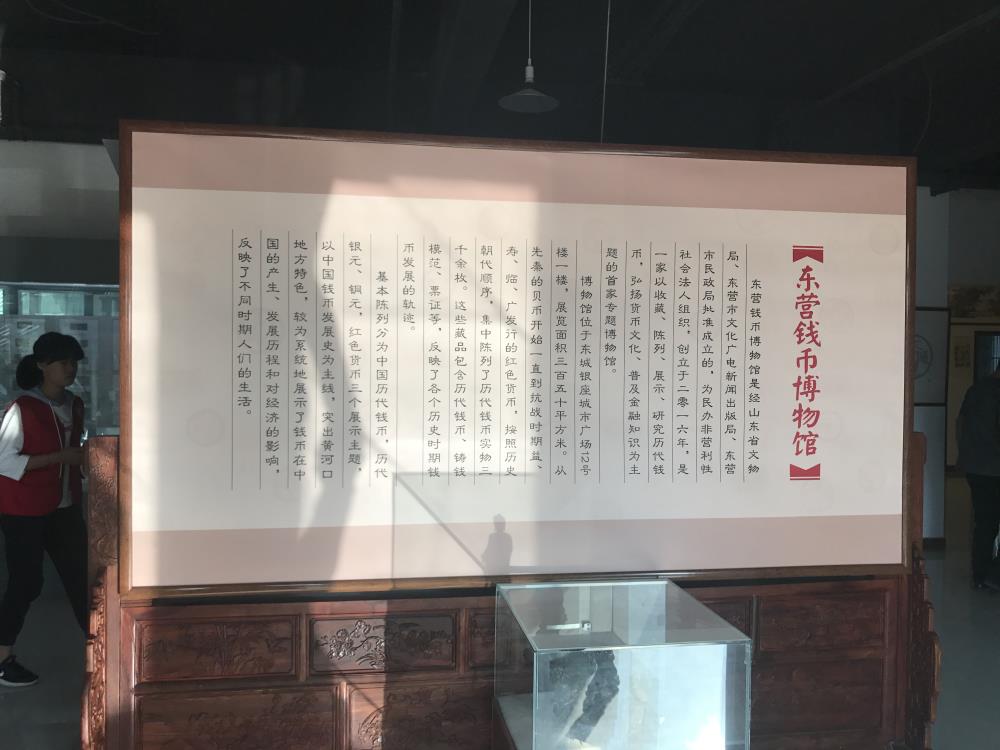 东营钱币博物馆
东营钱币博物馆是经山东省文物
局、东营市文化广电新闻出版局、东营
市民政局批准成立的，为民办非营利性
社会法人组织，创立于二零一六年，是
一家以收藏、陈列、展示、研究历代钱
币，弘扬货币文化、普及金融知识为主
题的首家专题博物馆。
博物馆位于东城银座城市广场12号
楼一楼，展览面积三百五十平方米。从
先秦的贝币开始一直到抗战时期益、
寿、临、广发行的红色货币，按照历史
朝代顺序，集中陈列了历代钱币实物三
千余枚。这些藏品包含历代钱币、铸钱
模范、票证等，反映了各个历史时期钱
币发展的轨迹。
基本陈列分为中国历代钱币，历代
银元、铜元，红色货币三个展示主题，
以中国钱币发展史为主线，突出黄河口
地方特色，较为系统地展示了钱币在中
国的产生、发展历程和对经济的影响，
反映了不同时期人们的生活。